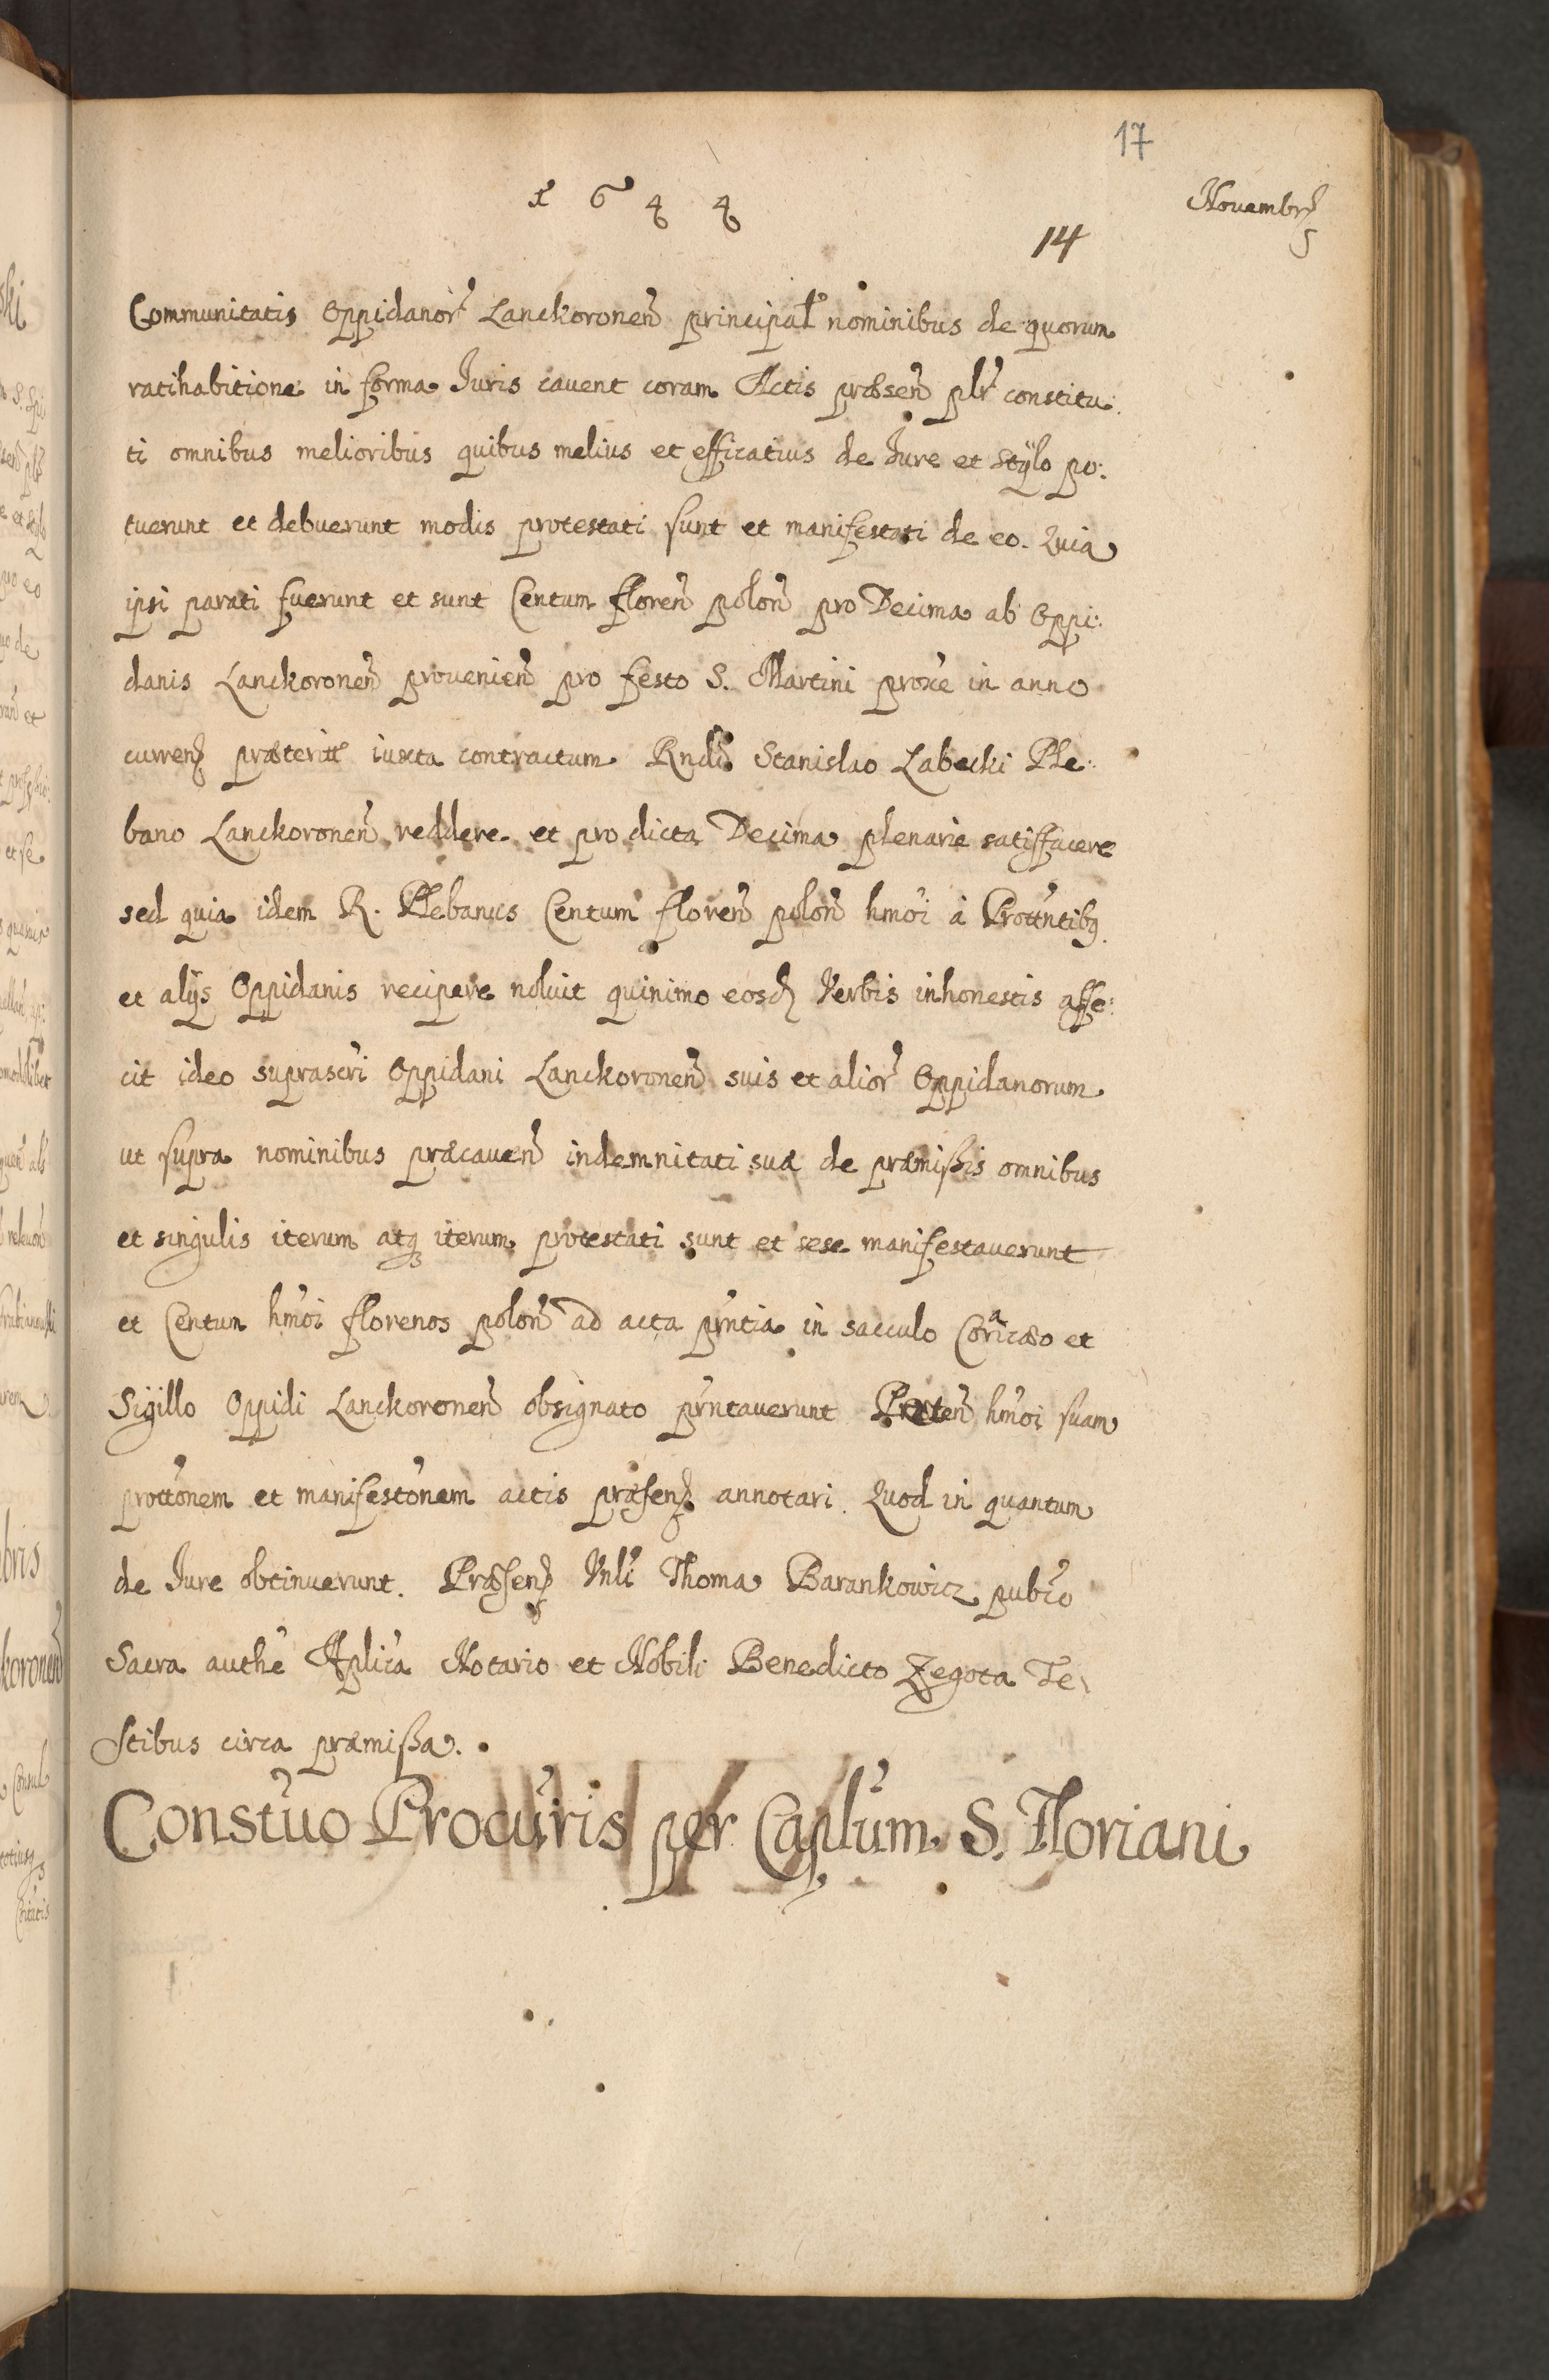 17
1644
Novembrs
14
Communitatis Oppidanor Lanckoronen principal nominibus de quorum
ratihabitione in forma Iuris cavent coram Actis præsen plr constitu:
ti omnibus melioribus quibus melius et efficatius de Iure et Stÿlo po:
tuerunt et debuerunt modis protestati sunt et manifestati de eo. Quia
ipsi parati fuerunt et sunt Centum floren polon pro Decima ab Oppi:
danis Lanckoronen provenien pro festo S. Martini proxe in anno
curren præteriti iuxta contractum Rndo Stanislao Labecki Ple:
bano Lanckoronen reddere et pro dicta Decima plenarie satisfacere
sed quia idem R. Plebanus Centum floren polon hmoi à Prottntibq
et alijs Oppidanis recipere noluit quinimo eosd Verbis inhonestis affe:
cit ideo suprascri Oppidani Lanckoronen suis et alior Oppidanorum
ut supra nominibus præcaven indemnitati suæ de præmissis omnibus
et singulis iterum atq iterum protestati sunt et sese manifestaverunt
et Centum hmoi florenos polon ad acta pntia in sacculo Coriaceo et
Sigillo Oppidi Lanckoronen obsignato pntaverunt Peten hmoi suam
prottonem et manifestonem actis præsen annotari. Quod in quantum
de Iure obtinuerunt. Præsen Vnli Thoma Barankowicz pubco
Sacra authe Aplica Notario et Nobili Benedicto Zegota Te
stibus circa præmissa.
Constuo Procuris per Caplum S. Floriani